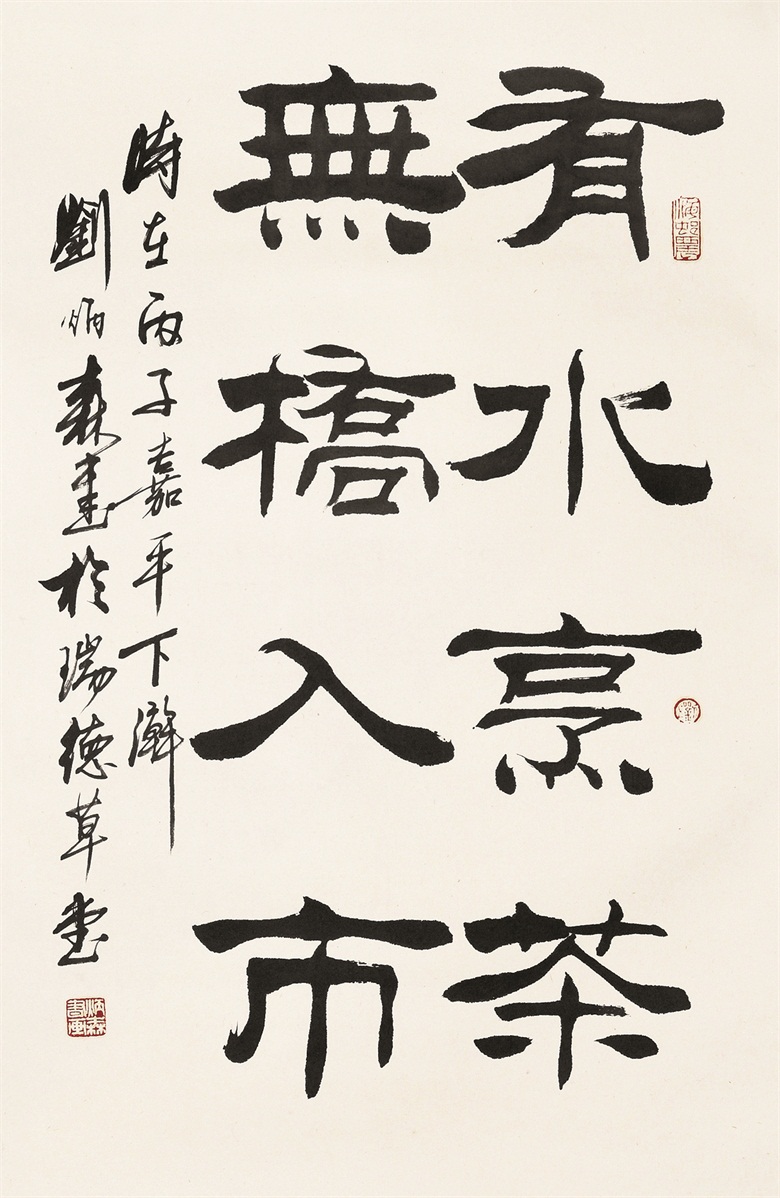 有水烹茶
無橋入市
時在丙子嘉平下澣
劉炳森書於瑞德草堂
炳森書画